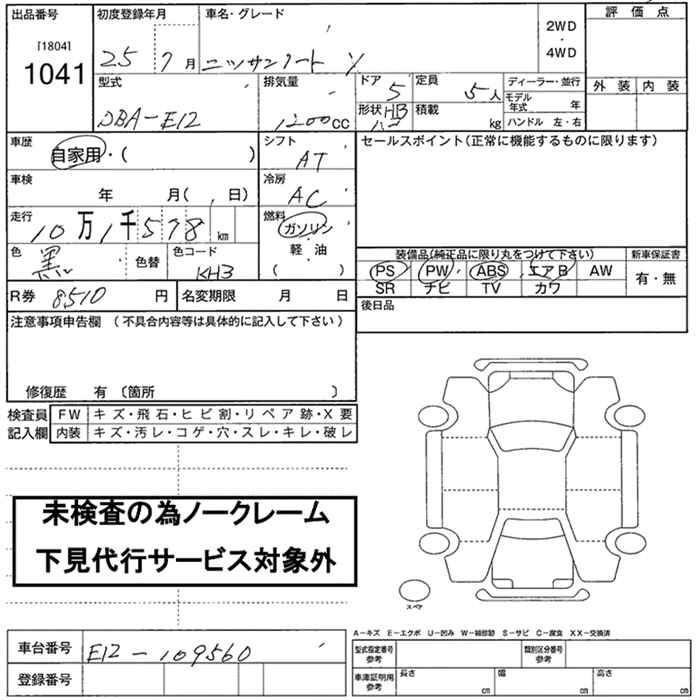 出品番号 初度登録年月 車名・グレード 2WD ・ 4WD 評価点
[1804]
1041 25 7月 ニッサンノート
外装 内装
型式 排気量 ドア 5 定員 5人 ディーラー・並行
DBA-E12 1200cc 形状 HB 積載 kg モデル年式 年
ハンドル 左・右
車歴 シフト セールスポイント(正常に機能するものに限ります)
自家用・( ) AT
車検 冷房
年 月( 日) AC
走行 燃料
10万1千578km ガソリン
軽・油
( )
色 黒 色替 色コード KH3
装備品(純正品に限り丸をつけて下さい) 新車保証書
PS PW ABS エアB AW 有・無
SR ナビ TV カワ
R券 8510円 名変期限 月 日
後日品
注意事項申告欄 (不具合内容等は具体的に記入して下さい)
修復歴 有 〔箇所 〕
検査員 FW キズ・飛石・ヒビ割・リペア跡・X要
記入欄 内装 キズ・汚レ・コゲ・穴・スレ・キレ・破レ
未検査の為ノークレーム
下見代行サービス対象外
スペア
A-キズ E-エクボ U-凹み W-補修跡 S-サビ C-腐食 XX-交換済
車台番号 E12-109560
型式指定番号 参考 類別区分番号 参考
登録番号
車庫証明用 参考 長さ cm 幅 cm 高さ cm